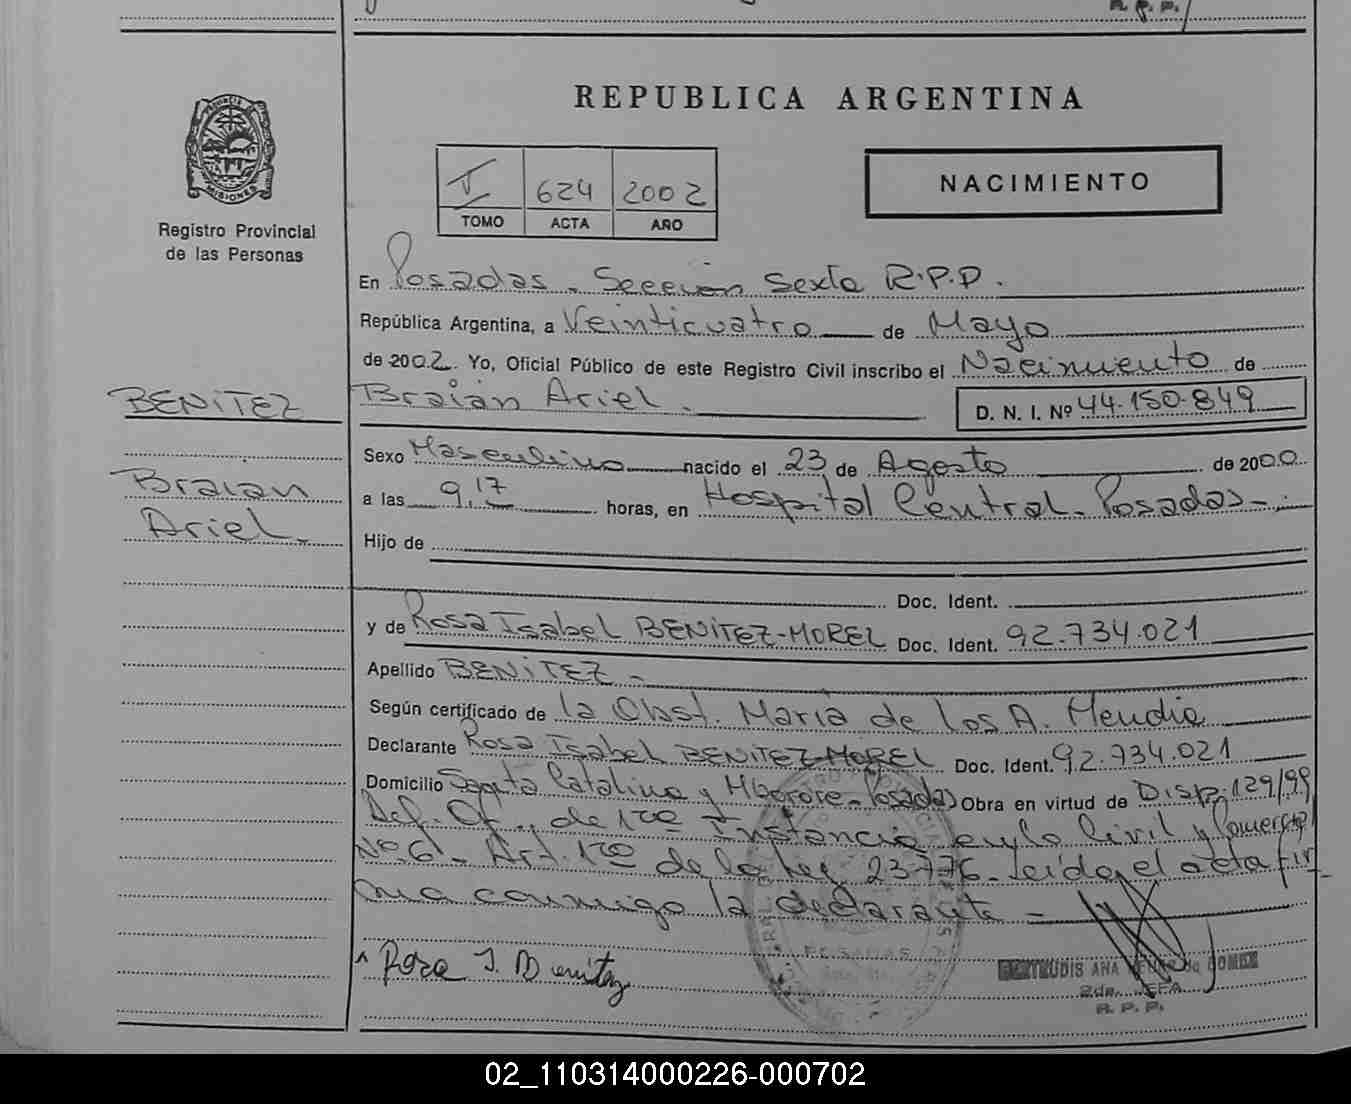 R. P. P.
PROVINCIA DE
MISIONES
Registro Provincial
de las Personas
REPUBLICA ARGENTINA
I 624 2002
TOMO ACTA AÑO
NACIMIENTO
En Posadas - Sección Sexta R.P.P.
República Argentina, a Veinticuatro de Mayo
de 2002. Yo, Oficial Público de este Registro Civil inscribo el Nacimiento de
BENITEZ
Braian Ariel. D. N. I. Nº 44.150.849
Sexo Masculino nacido el 23 de Agosto de 2000
Braian
a las 9,17 horas, en Hospital Central - Posadas -
Ariel.
Hijo de
Doc. Ident.
y de Rosa Isabel BENITEZ-MOREL Doc. Ident. 92.734.021
Apellido BENITEZ -
Según certificado de la Obst. Maria de los A. Mendia
Declarante Rosa Isabel BENITEZ-MOREL Doc. Ident. 92.734.021
Domicilio Sagita Catalina y Mborore - Posadas Obra en virtud de Disp. 129/99
Def. Of. de 1ra Instancia en lo Civil y Comercial
Nº 6 - Art. 1ro de la Ley 23776 - Leida el acta fir-
ma conmigo la declarante -
POSADAS
Rosa I. Benitez
GERTRUDIS ANA de GOMEZ
2da. JEFA
R. P. P.
02_110314000226-000702